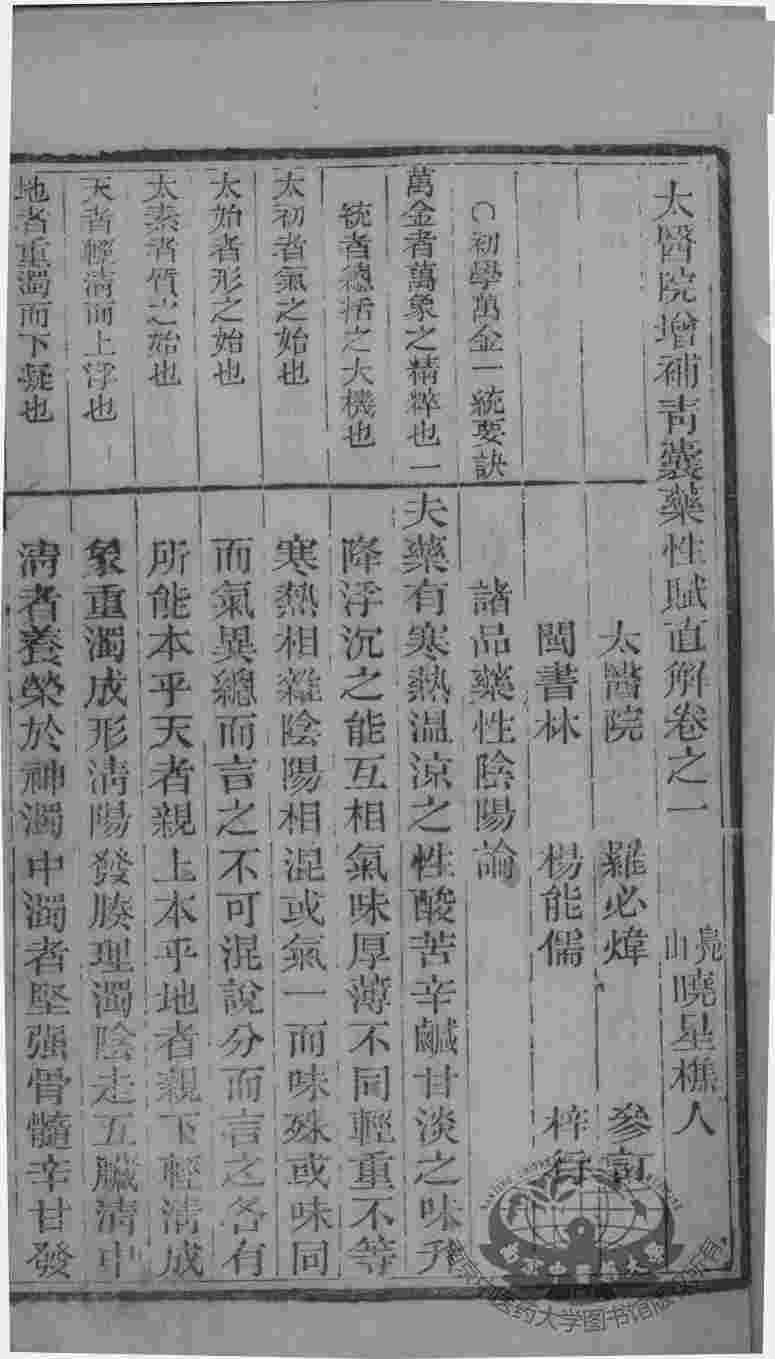 太醫院增補青囊藥性賦直解卷之一
山 曉星樵人
太醫院 羅必煒 參訂
閩書林 楊能儒 梓行
○初學萬金一統要訣
萬金者萬象之精粹也一
統者總括之大機也
太初者氣之始也
太始者形之始也
太素者質之始也
天者輕清而上浮也
地者重濁而下凝也
諸品藥性陰陽論
夫藥有寒熱溫涼之性酸苦辛鹹甘淡之味升
降浮沉之能互相氣味厚薄不同輕重不等
寒熱相雜陰陽相混或氣一而味殊或味同
而氣異總而言之不可混說分而言之各有
所能本乎天者親上本乎地者親下輕清成
象重濁成形清陽發腠理濁陰走五臟清中
清者養榮於神濁中濁者堅强骨髓辛甘發
南京中医药大学图书馆